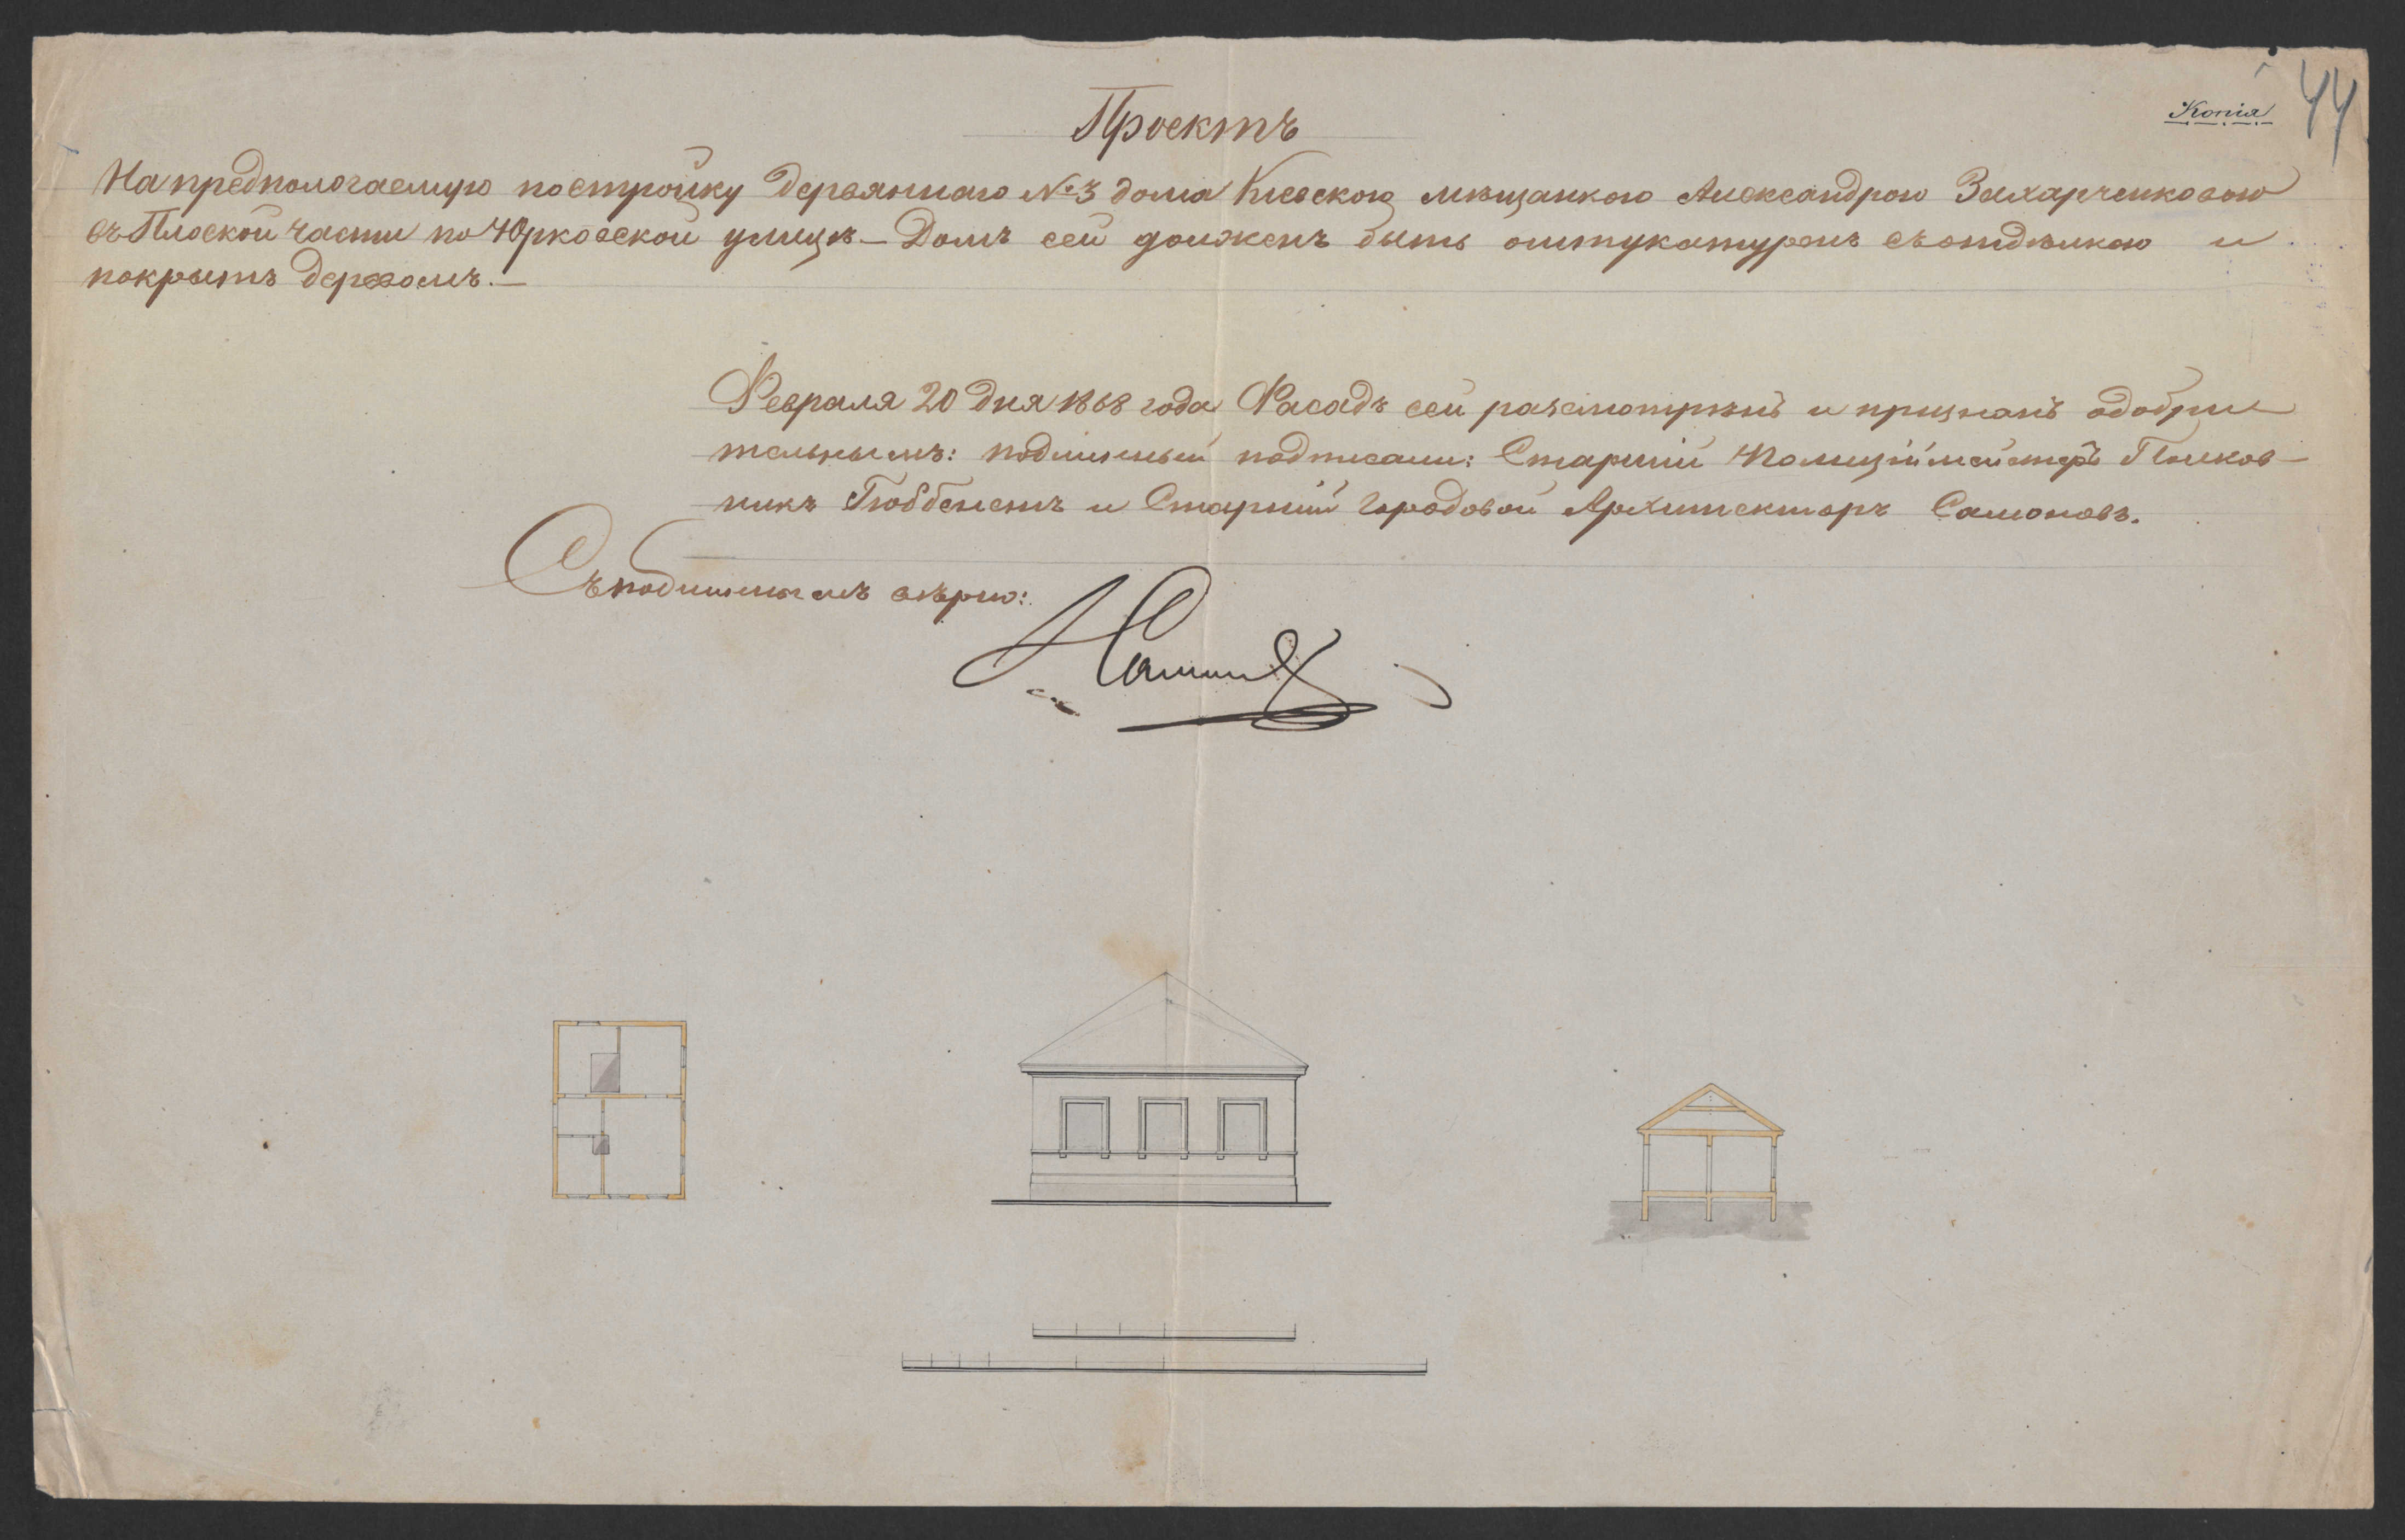 Копія
44
Проектъ
На предпологаемую постройку деревяннаго №3 дома Кіевскою мѣщанкою Александрою Захарченковою
въ Плоской части по Юрковской улицѣ — Домъ сей долженъ быть оштукатуренъ съ отдѣлкою и
покрытъ деревомъ. —
Февраля 20 дня 1868 года Фасадъ сей разсмотрѣнъ и признанъ одобри-
тельнымъ: подлинный подписали: Старшій Полиціймейстеръ Полков-
никъ Гюббенетъ и Старшій Городовой Архитекторъ Самоновъ.
Съ подлиннымъ вѣрно: